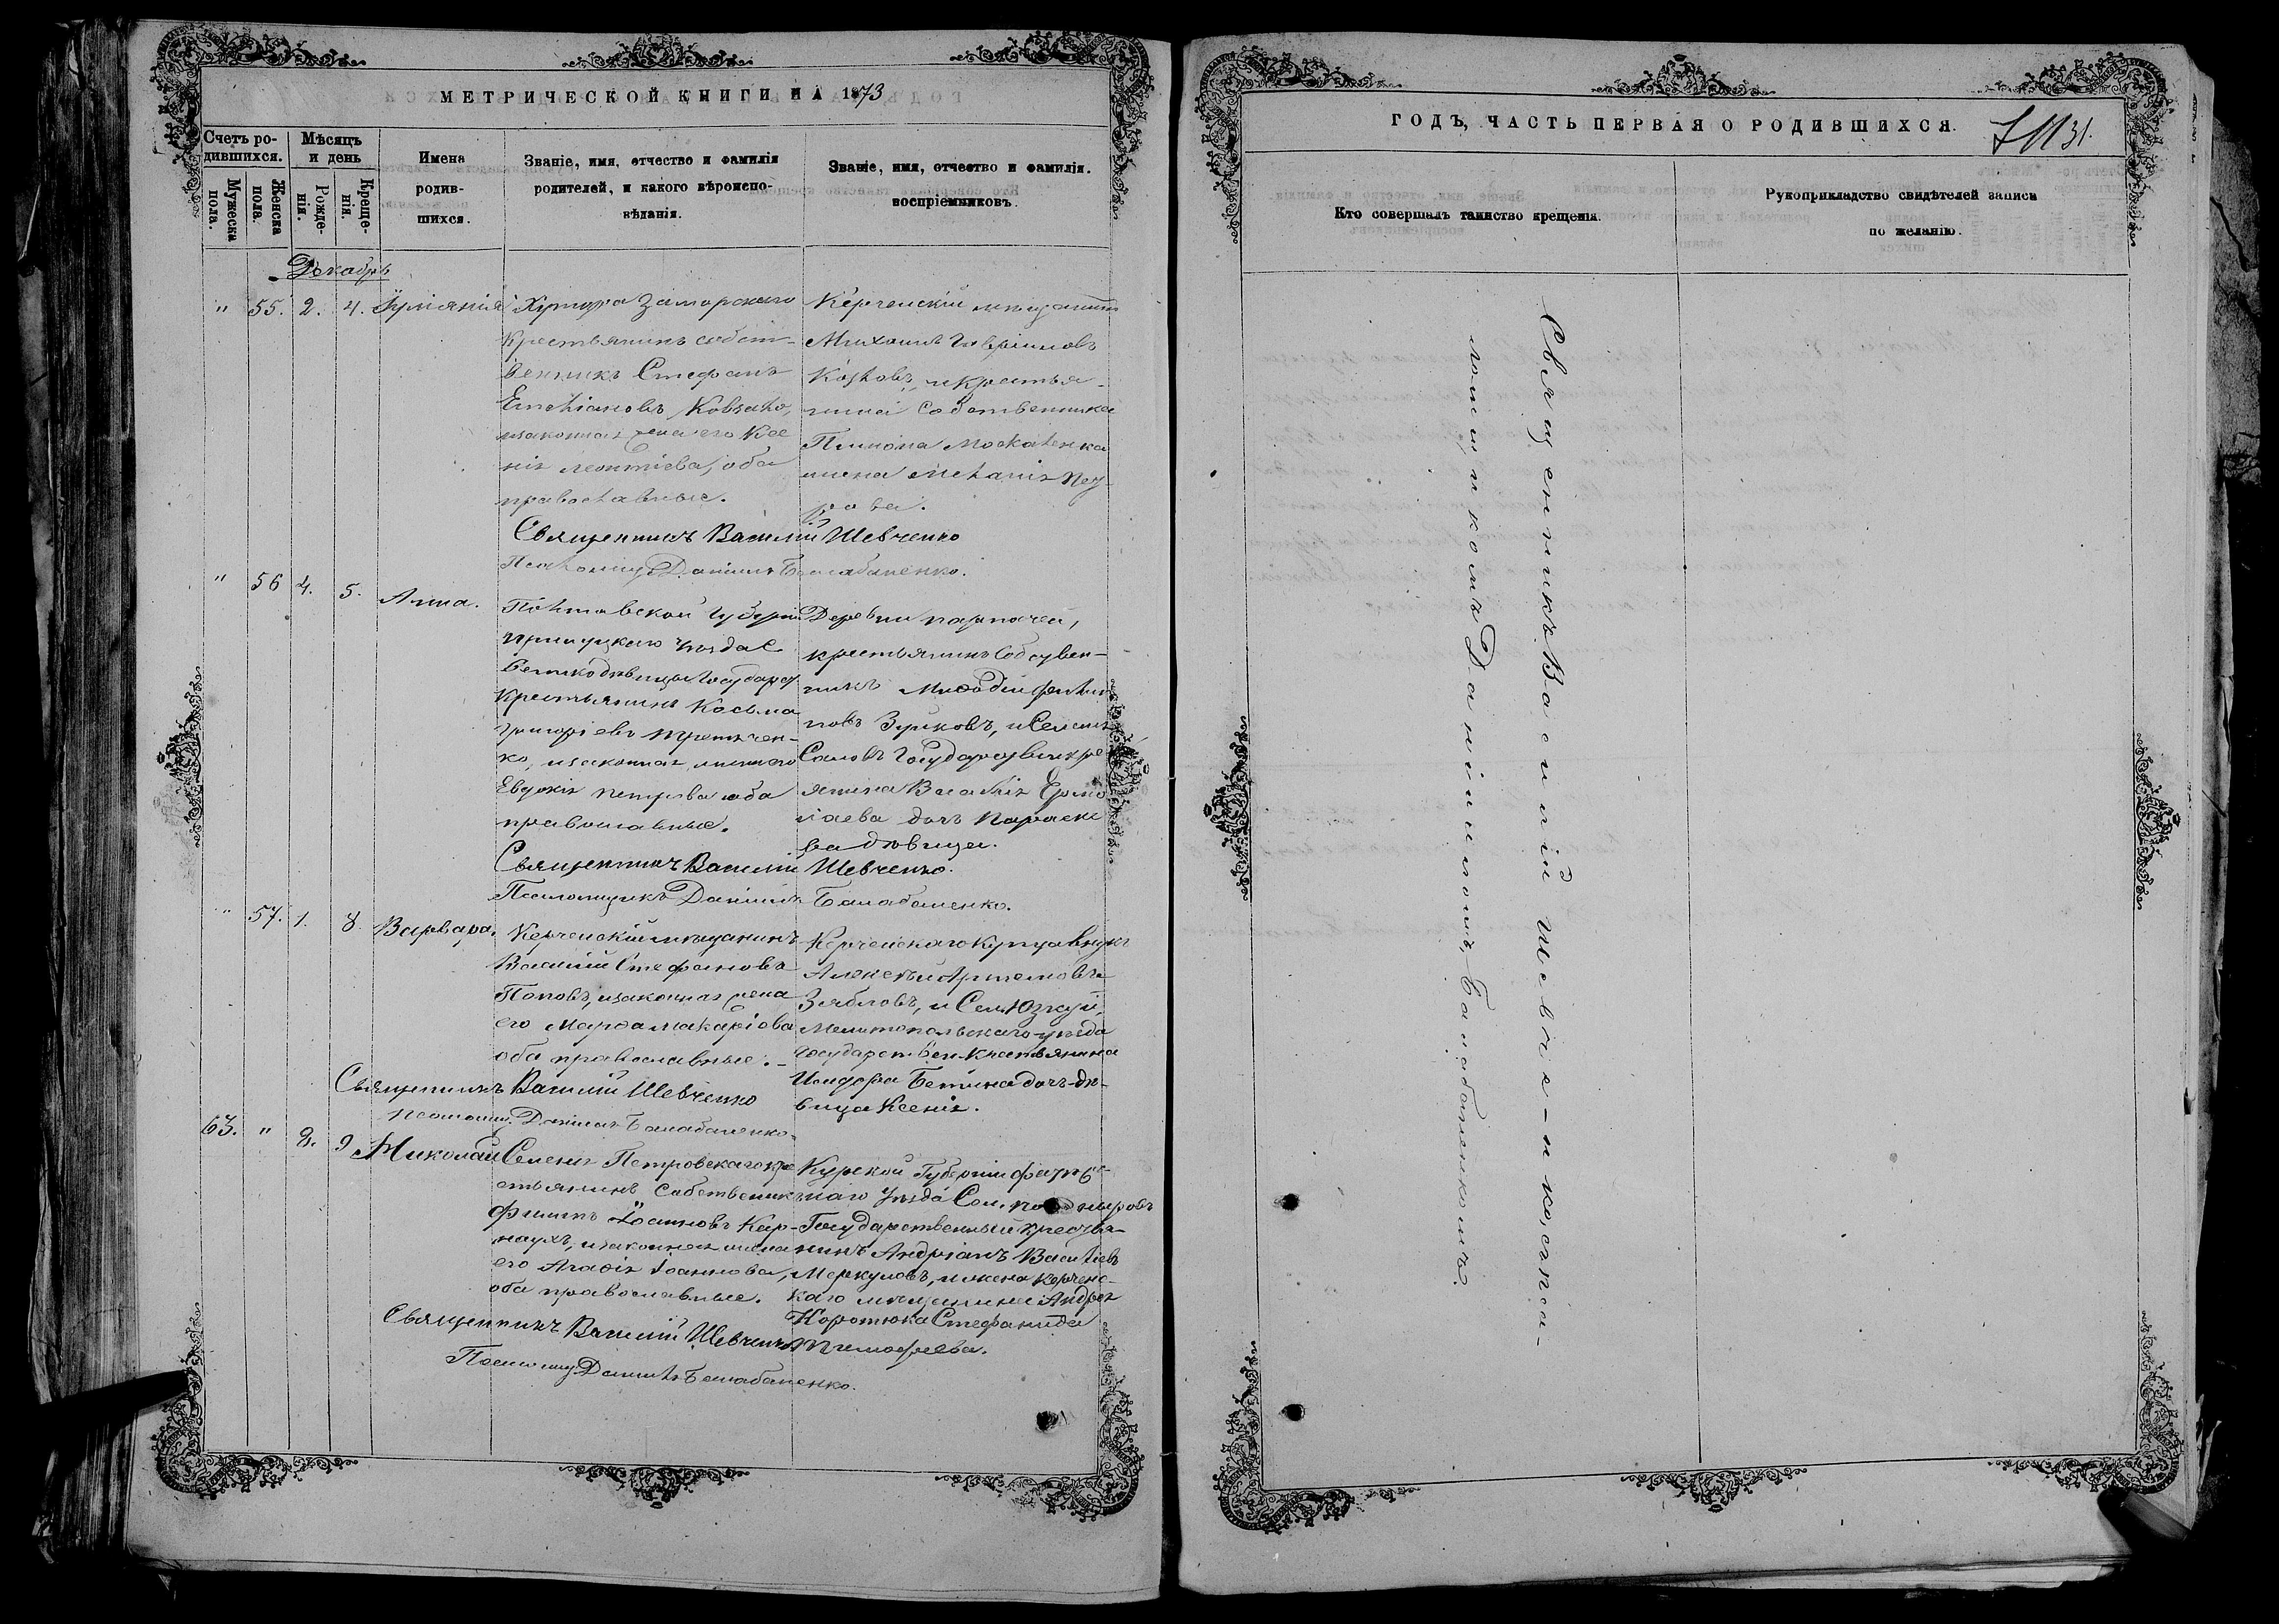 МЕТРИЧЕСКОЙ КНИГИ НА 1873
Счетъ ро-
дившихся.
Мужеска
пола.
Женска
пола.
Мѣсяцъ
и день
Рожде-
нія.
Креще-
нія.
Имена
родив-
шихся.
Званіе, имя, отчество и фамилія
родителей, и какого вѣроиспо-
вѣданія.
Званіе, имя, отчество и фамилія.
воспріемниковъ.
Декабрь
" 55. 2. 4.
Хутора Заморскаго
крестьянинъ собст-
венникъ Стефанъ
Емеліановъ
изаконная жена его Ксе
нія Леонтіева, оба
православные.
Керченскій мещанинъ
Михаилъ Гавріиловъ
Козловъ, и крестья-
нина Собственника
Пимона Москаленка
жена Меланія
Священникъ Василій Шевченко
Псаломщ. Даніилъ Балабаненко.
" 56 4. 5. Анна.
Полтавской Губерніи
Прилуцкаго уѣзда С.
Великодѣвицы Государст
крестьянинъ Косьма
Григоріевъ
ко, изаконная жена его
Евдокія Петрова оба
православные.
Деревни Парпачей,
крестьянинъ Собствен-
никъ Мефодій Филип
повъ Зуйковъ, и Селенія
Государствен кре
янина Василія Ермо
лаева дочь Параске
ва дѣвица.
Священникъ Василій Шевченко.
Псаломщикъ Даніилъ Балабаненко.
" 57. 1. 8. Варвара.
Керченскій мещанинъ
Василій Стефановъ
Поповъ, изаконная жена
его Марѳа Макаріова
оба православные.-
Керченскаго Купца внукъ
Алексѣй Артемовъ
Зябловъ, и Сел. Юзкуй,
Мелитопольскаго уѣзда
Государствен. Крестьянина
Исидора Бетина дочь дѣ-
вица Ксенія.
Священникъ Василій Шевченко
Псаломщ. Даніилъ Балабаненко.
63. " 8. 9 Николай
Селенія Петровскаго кре
стьянинъ Собственникъ
Филипъ Іоанновъ Кар-
наухъ, изаконная жена
его Агафія Іоаннова,
оба православные.
Курской Губерніи Фатѣ
жнаго Уѣзда Сел.
Государственный крестья-
нинъ Андріанъ Василіевъ
Меркуловъ, и жена Керченс-
каго мещанина Андрея
Коротюка Стефанида
Тимофеева.
Священникъ Василій Шевченко
Псаломщ Даніилъ Балабаненко.
ГОДЪ, ЧАСТЬ ПЕРВАЯ О РОДИВШИХСЯ.
Кто совершалъ таинство крещенія.
Рукоприкладство свидѣтелей записи
по желанію.
Священникъ Василій Шевче-нко, спса-
ломщикомъ Даніиломъ Балабаненкомъ.